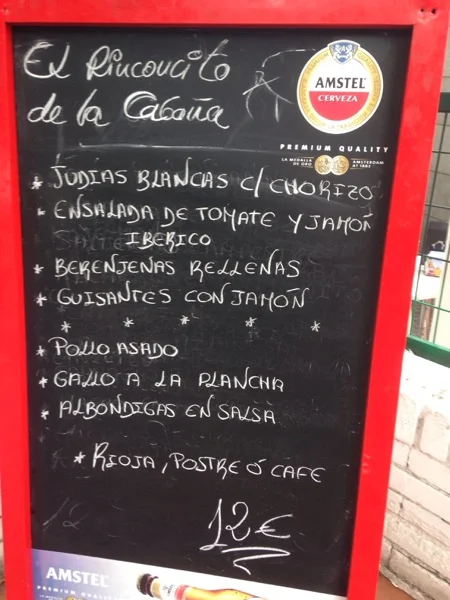 El Rinconcito
de la Cabaña
AMSTEL
CERVEZA
PREMIUM QUALITY
LA MEDALLA
DE ORO
AMSTERDAM
* JUDIAS BLANCAS C/ CHORIZO
* ENSALADA DE TOMATE Y JAMÓN
IBERICO
* BERENJENAS RELLENAS
* GUISANTES CON JAMÓN
* * * * *
* POLLO ASADO
* GALLO A LA PLANCHA
* ALBONDIGAS EN SALSA
* RIOJA, POSTRE Ó CAFE
12
12€
AMSTEL
PREMIUM QUALITY